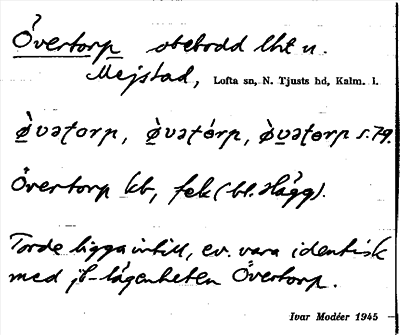 Övertorp obebodd lht u.
Mejstad, Lofta sn, N. Tjusts hd, Kalm. l.
ø̀vətorp, ø̀vətórp, ø̀vətorp s. 79.
Övertorp kb, fek (bl. Hägg).
Torde ligga intill, ev. vara identisk
med jb-lägenheten Övertorp.
Ivar Modéer 1945